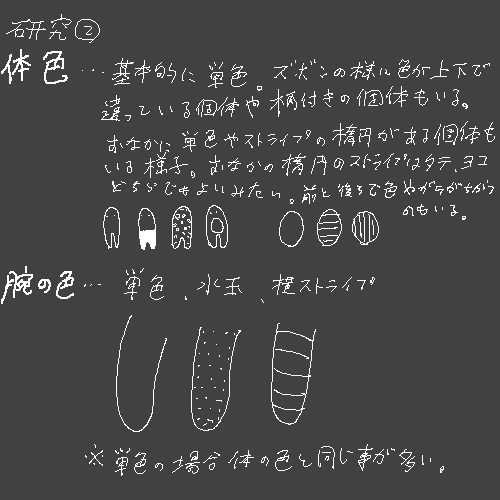 研究②
体色 … 基本的に単色。ズボンの様に色が上下で
違っている個体や柄付きの個体もいる。
おなかに単色やストライプの楕円がある個体も
いる様子。おなかの楕円のストライプはタテ、ヨコ
どちらでもよいみたい。前と後ろで色やガラがちがう
のもいる。
腕の色 … 単色、水玉、横ストライプ
※単色の場合体の色と同じ事が多い。